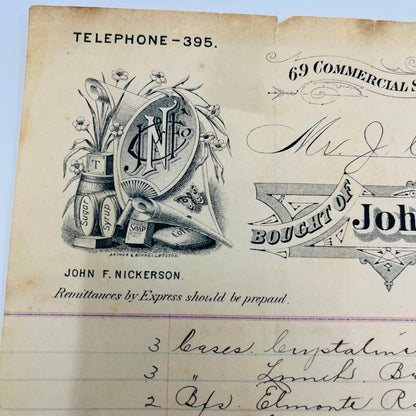 TELEPHONE–395.
69 COMMERCIAL S
Mr. J.
JNF Co
T
Sugar
Syrup
SOAP
BOUGHT OF
Joh
JOHN F. NICKERSON.
Remittances by Express should be prepaid.
3 Cases Crystalina
3 " Lunch Ba
2 Bfs. Elmonte R